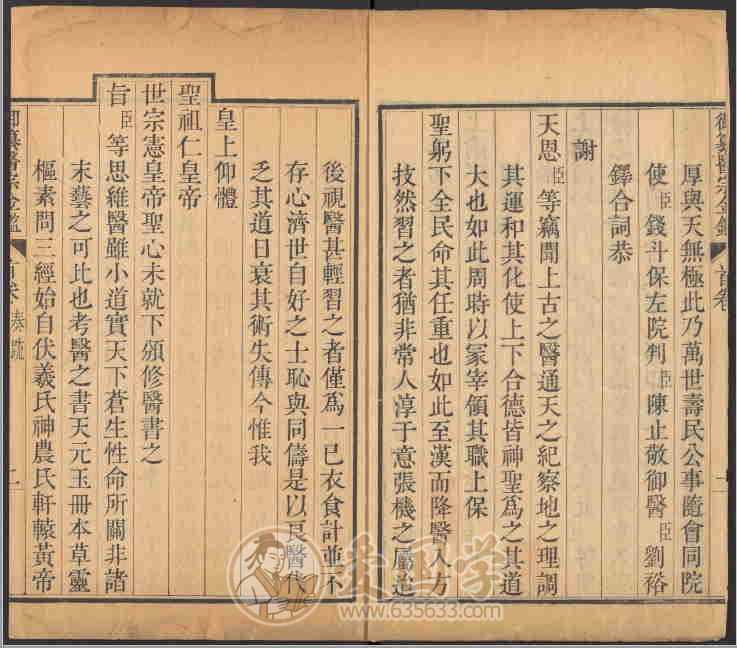 御纂醫宗金鑑 首卷 一
厚與天無極此乃萬世壽民公事隨會同院
使臣錢斗保左院判臣陳止敬御醫臣劉裕
鐸合詞恭
謝
天恩臣等竊聞上古之醫通天之紀察地之理調
其運和其化使上下合德皆神聖爲之其道
大也如此周時以冢宰領其職上保
聖躬下全民命其任重也如此至漢而降醫入方
技然習之者猶非常人淳于意張機之屬迨
後視醫甚輕習之者僅爲一己衣食計並不
存心濟世自好之士恥與同儔是以良醫代
乏其道日衰其術失傳今惟我
皇上仰體
聖祖仁皇帝
世宗憲皇帝聖心未就下頒修醫書之
旨臣等思維醫雖小道實天下蒼生性命所關非諸
末藝之可比也考醫之書天元玉冊本草靈
樞素問三經始自伏羲氏神農氏軒轅黃帝
御纂醫宗金鑑 首卷 奏疏 二
爱国学
www.635633.com